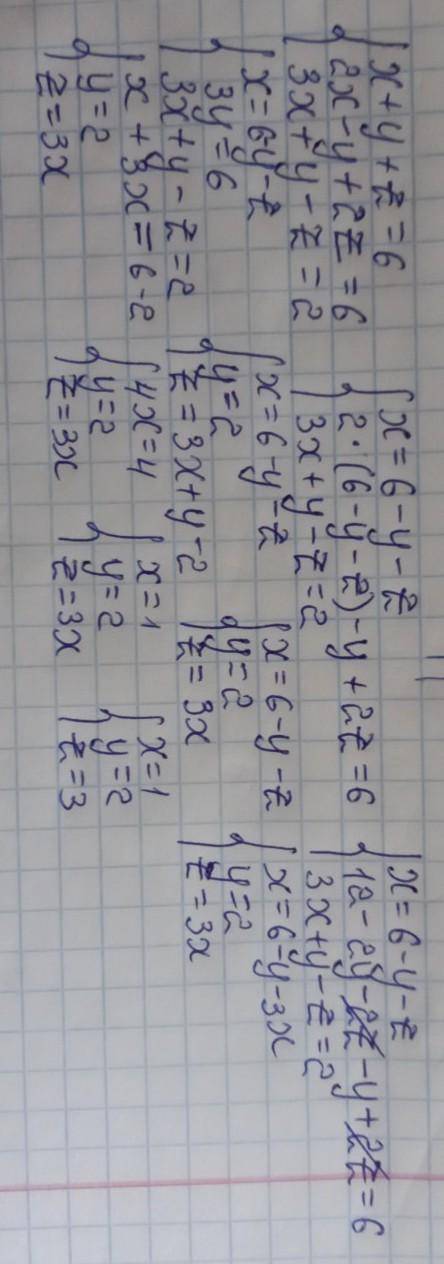 x+y+z=6
2x-y+2z=6
3x+y-z=2
x=6-y-z
2·(6-y-z)-y+2z=6
3x+y-z=2
x=6-y-z
12-2y-2z-y+2z=6
3x+y-z=2
x=6y-z
3y=6
3x+y-z=2
x=6-y-z
y=2
z=3x+y-2
x=6-y-z
y=2
z=3x
x=6-y-3x
y=2
z=3x
x+3x=6-2
y=2
z=3x
4x=4
y=2
z=3x
x=1
y=2
z=3x
x=1
y=2
z=3